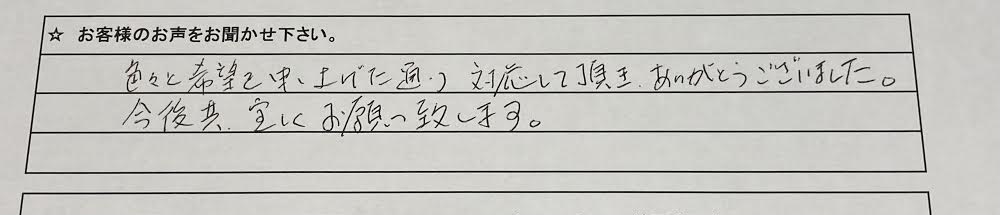 ☆ お客様のお声をお聞かせ下さい。
色々と希望を申し上げた通り 対応して頂き、ありがとうございました。
今後共、宜しくお願い致します。